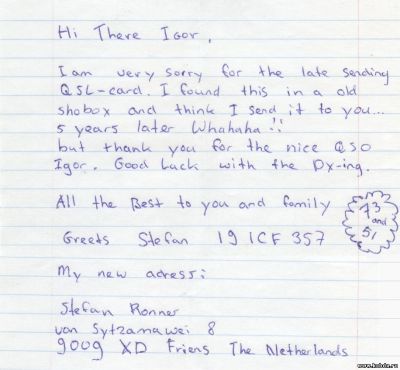 Hi There Igor,
I am very sorry for the late sending
QSL-card. I found this in a old
shobox and think I send it to you...
5 years later Whahaha!!
but thank you for the nice QSO
Igor. Good Luck with the Dx-ing.
All the Best to you and family
73
and
51
Greets Stefan 19 ICF 357
My new adress:
Stefan Ronner
van Sytzamawei 8
9009 XD Friens The Netherlands